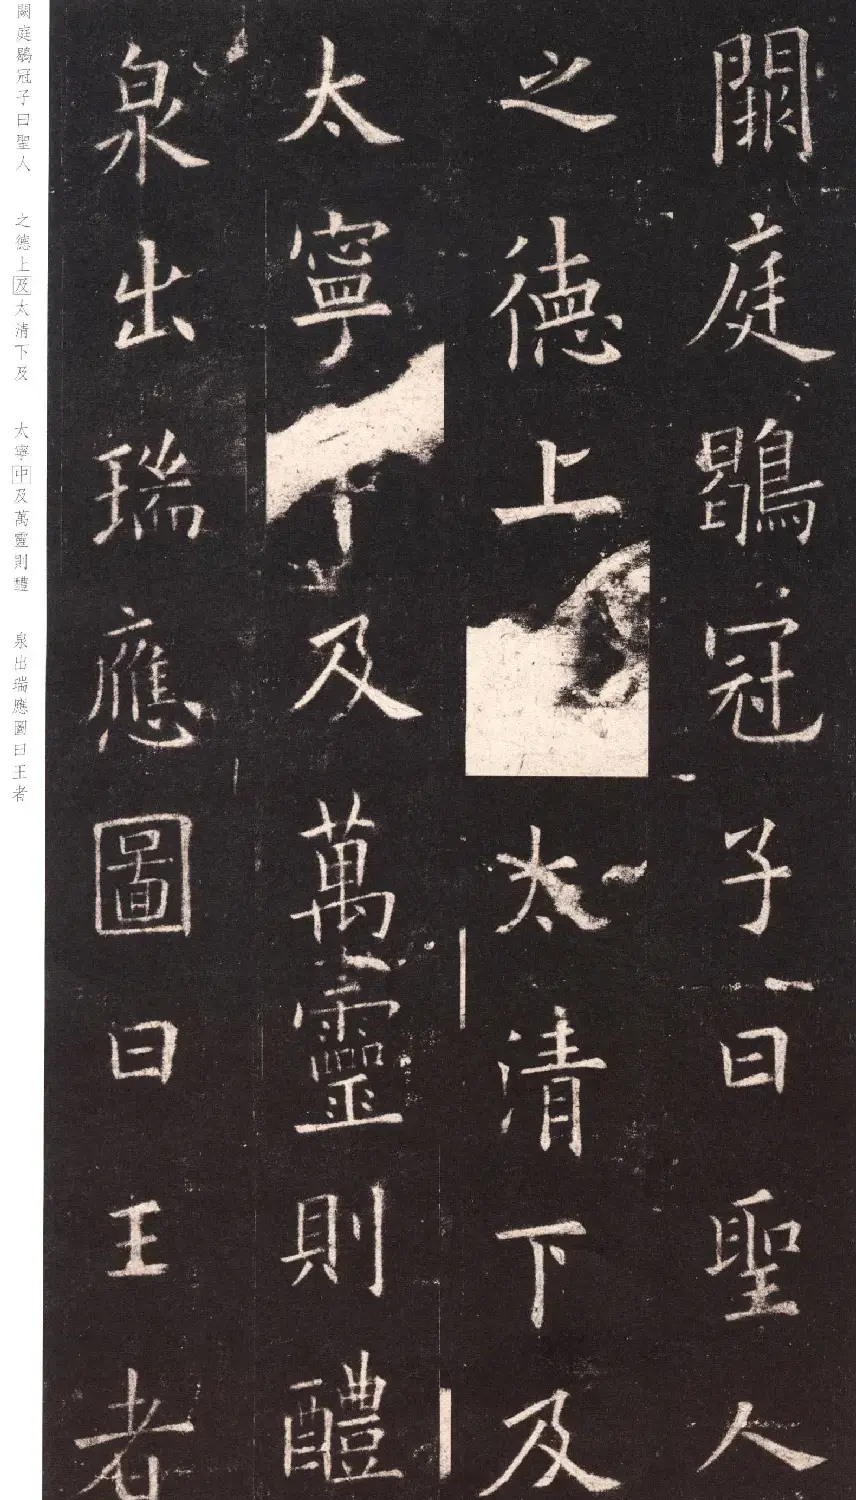 闕庭鶡冠子曰聖人
之德上太清下及
太寧及萬靈則醴
泉出瑞應圖曰王者
闕庭鶡冠子曰聖人
之德上及太清下及
太寧中及萬靈則醴
泉出瑞應圖曰王者